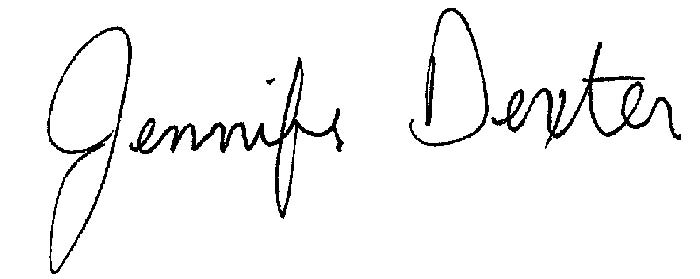 Jennifer Dexter